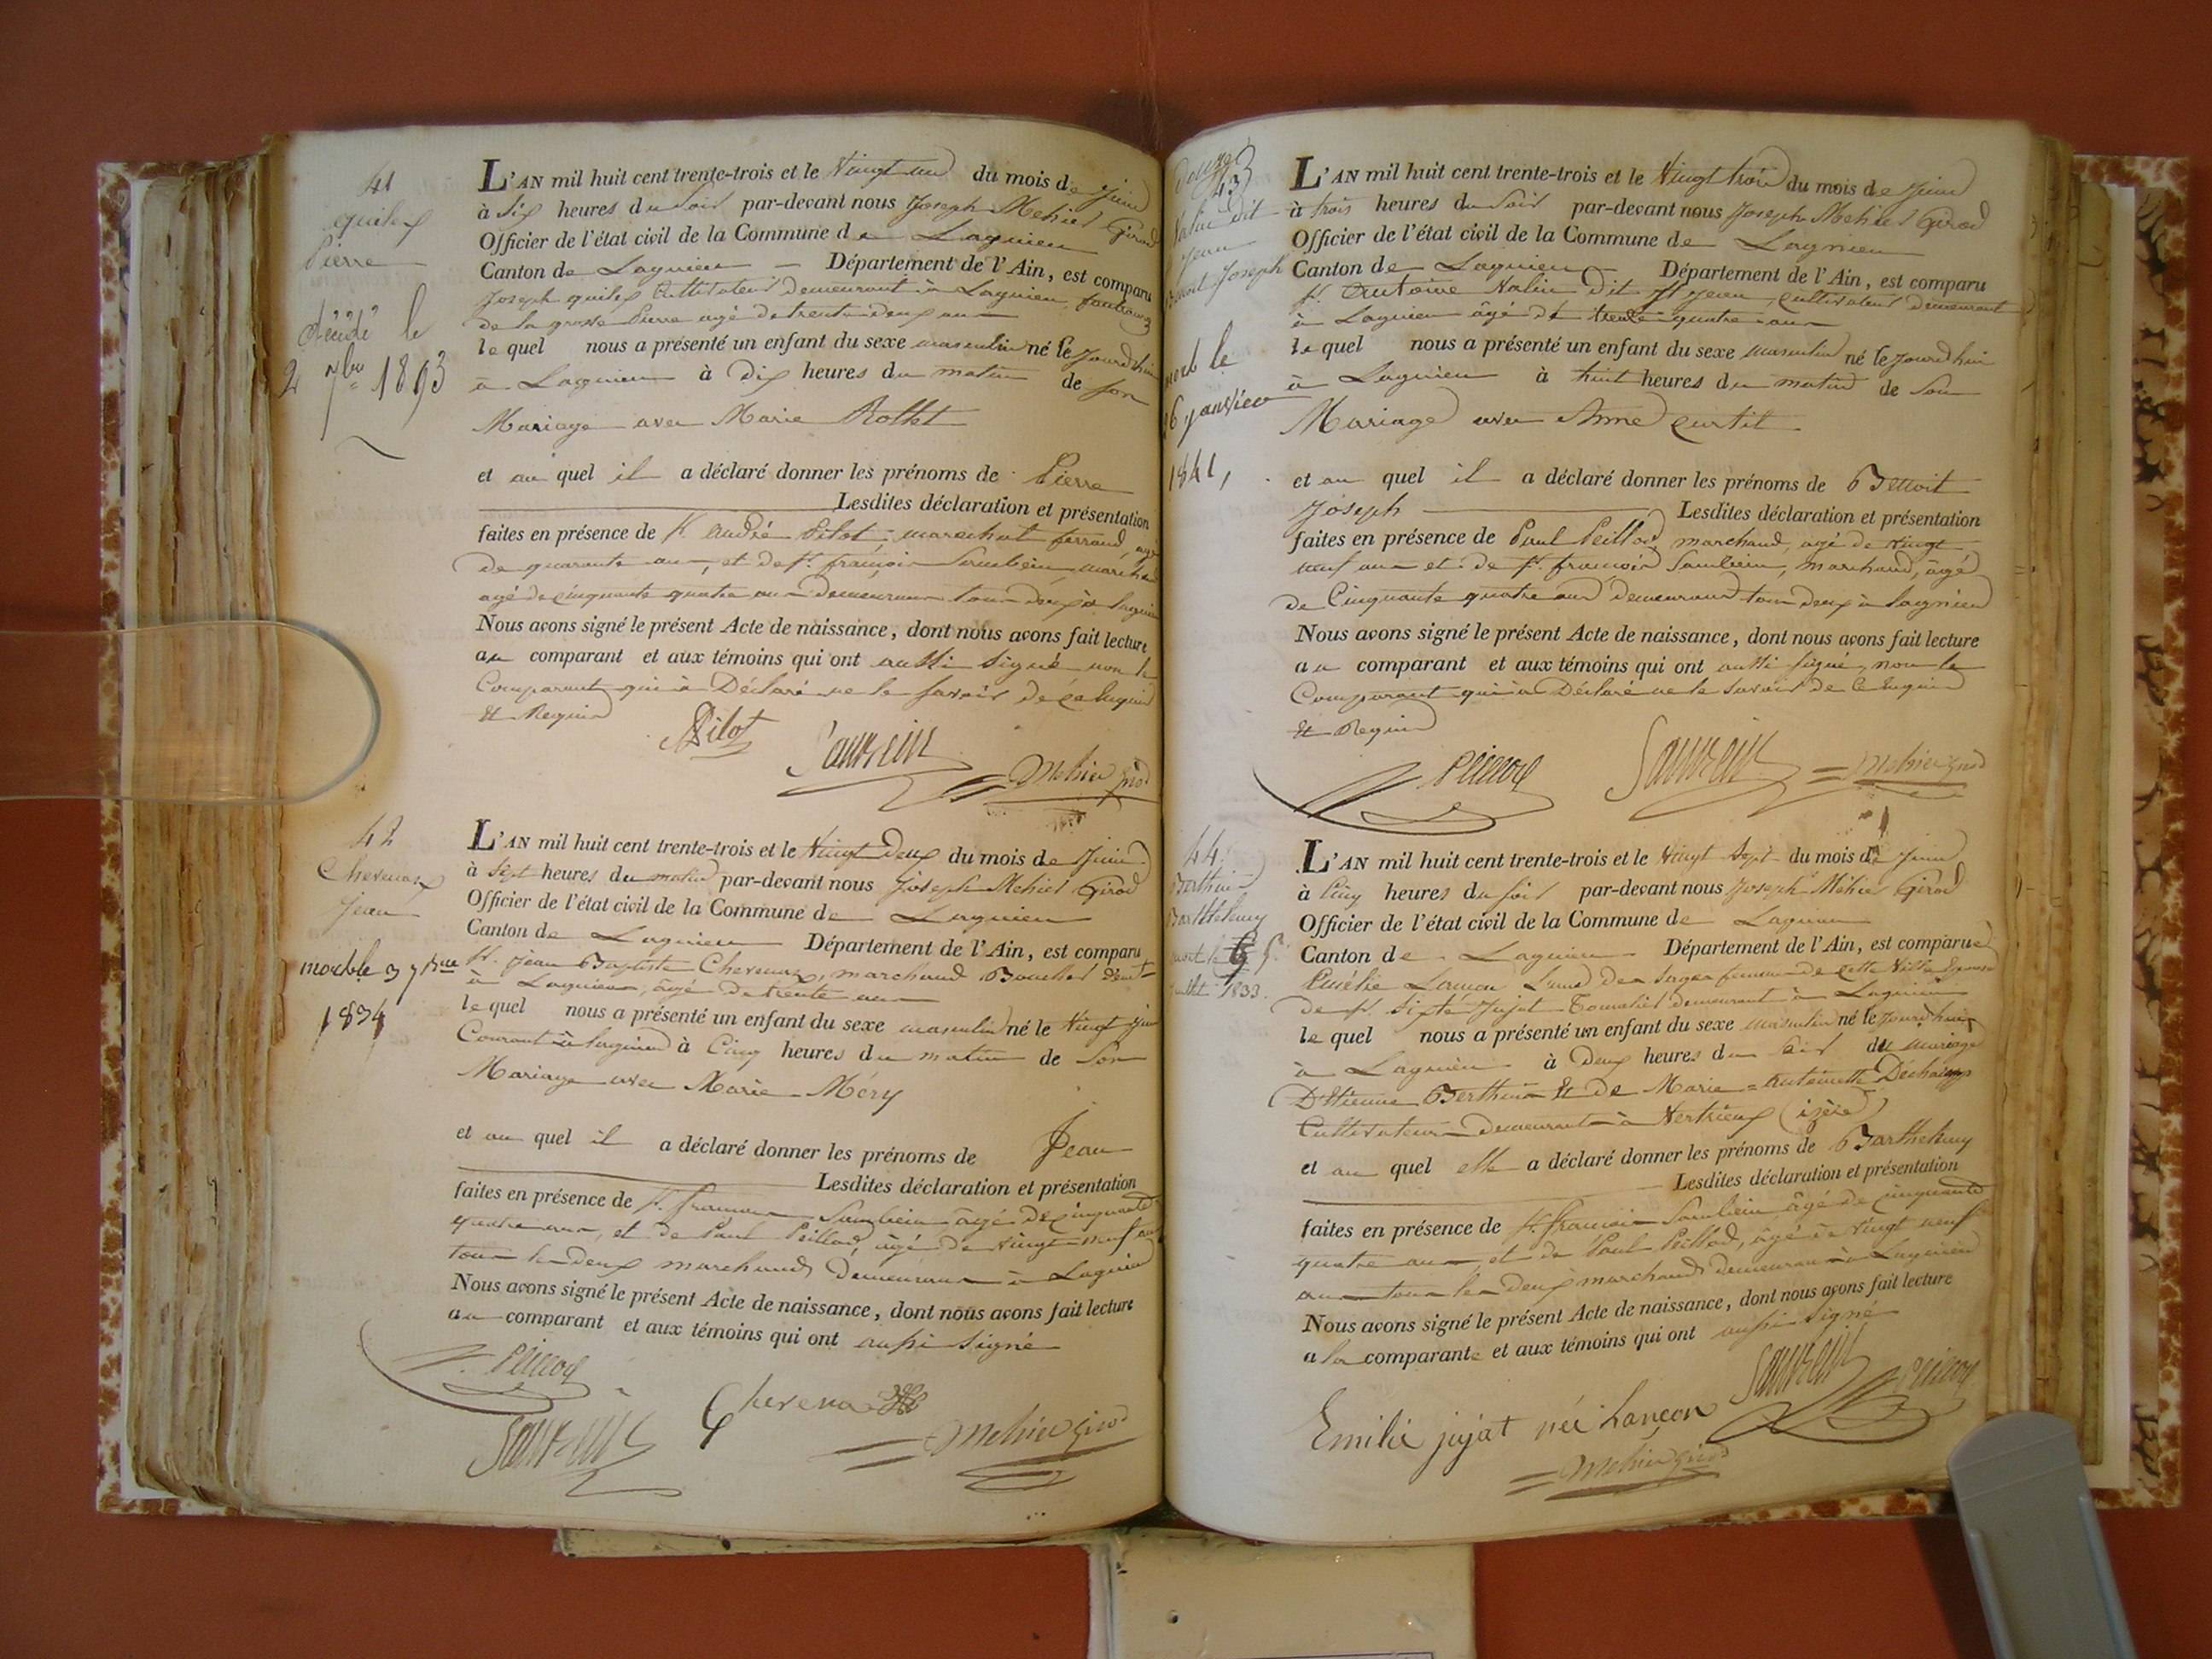 41
quilex
Pierre
décédé le
2 7bre 1893
L'AN mil huit cent trente-trois et le Vingt un du mois de Juin
à Six heures du Soir par-devant nous Joseph Mehier Girod
Officier de l'état civil de la Commune de Lagnieu
Canton de Lagnieu Département de l'Ain, est comparu
Joseph quilex Cultivateur demeurant à Lagnieu, fauxbourg
de la grosse Pierre agé de trente deux ans
le quel nous a présenté un enfant du sexe masculin né le Jourdhui
à Lagnieu à Dix heures du matin de son
Mariage avec Marie Rollet
et au quel il a déclaré donner les prénoms de Pierre
Lesdites déclaration et présentation
faites en présence de sr. André Pilot marechal ferrand, agé
de quarante ans, et de sr. françois Saubrein marchand
agé de cinquante quatre ans demeurans tous deux à lagnieu
Nous avons signé le présent Acte de naissance, dont nous avons fait lecture
au comparant et aux témoins qui ont aussi signé non le
Comparant qui a Déclaré ne le savoir de ce Enquis
Et Requis
Pilot
Mehier Girod
42
Chevenax
Jean
mort le 3 7bre
1834
L'AN mil huit cent trente-trois et le Vingt Deux du mois de Juin
à Sept heures du matin par-devant nous Joseph Mehier Girod
Officier de l'état civil de la Commune de Lagnieu
Canton de Lagnieu Département de l'Ain, est comparu
sr. Jean Baptiste Chevenax, marchand Boucher demt.
à Lagnieu, âgé de trente ans
le quel nous a présenté un enfant du sexe masculin né le Vingt Juin
Courant à lagnieu à Cinq heures du matin de Son
Mariage avec Marie Méry
et au quel il a déclaré donner les prénoms de Jean
Lesdites déclaration et présentation
faites en présence de sr. francois Saubrein âgé de cinquante
quatre ans, et de Paul Peillod, âgé de vingt neuf ans
tous les deux marchands Demeurans à Lagnieu
Nous avons signé le présent Acte de naissance, dont nous avons fait lecture
au comparant et aux témoins qui ont aussi signé
Mehier Girod
43
dit
Jean
Benoit Joseph
mort le
26 janvier
1841,
L'AN mil huit cent trente-trois et le Vingt trois du mois de Juin
à trois heures du Soir par-devant nous Joseph Mehier Girod
Officier de l'état civil de la Commune de Lagnieu
Canton de Lagnieu Département de l'Ain, est comparu
sr. Antoine Valin Dit St Jean, cultivateur demeurant
à Lagnieu âgé de trente quatre ans
le quel nous a présenté un enfant du sexe masculin né le Jourdhui
à Lagnieu à huit heures du matin de Son
Mariage avec Anne Curtil
et au quel il a déclaré donner les prénoms de Benoit
Joseph Lesdites déclaration et présentation
faites en présence de Paul Peillod, marchand, agé de vingt
neuf ans et de sr. francois Saubrein, marchand, âgé
de Cinquante quatre ans demeurans tous deux à lagnieu
Nous avons signé le présent Acte de naissance, dont nous avons fait lecture
au comparant et aux témoins qui ont aussi signé, non le
Comparant qui a Déclaré ne le savoir de ce Enquis
Et Requis
Mehier Girod
44
Berthin
Barthélemy
mort le 5
juillet 1833.
L'AN mil huit cent trente-trois et le Vingt Sept du mois de Juin
à Cinq heures du Soir par-devant nous Joseph Mehier Girod
Officier de l'état civil de la Commune de Lagnieu
Canton de Lagnieu Département de l'Ain, est comparue
Emélie Lançon L'une des Sages femmes de cette Ville Epouse
de sr. Sixte Jujat Tonnelier demeurant à Lagnieu
le quel nous a présenté un enfant du sexe masculin né le Jourdhui
à Lagnieu à Deux heures du Soir du mariage
D'Etienne Berthin Et de Marie Antoinette Déchamps
Cultivateurs Demeurant à Vertrieux (izère)
et au quel elle a déclaré donner les prénoms de Barthelemy
Lesdites déclaration et présentation
faites en présence de sr. francois Saubrein âgé de cinquante
quatre ans, et de Paul Peillod, âgé de vingt neuf
ans tous les Deux marchands demeurans à Lagnieu
Nous avons signé le présent Acte de naissance, dont nous avons fait lecture
a la comparante et aux témoins qui ont aussi signé
Emilie jujat née Lançon
Mehier Girod